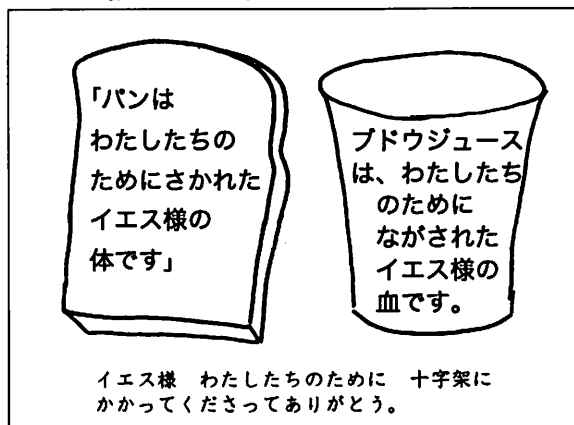 「パンは
わたしたちの
ためにさかれた
イエス様の
体です」
ブドウジュース
は、わたしたち
のために
ながされた
イエス様の
血です。
イエス様　わたしたちのために　十字架に
かかってくださってありがとう。